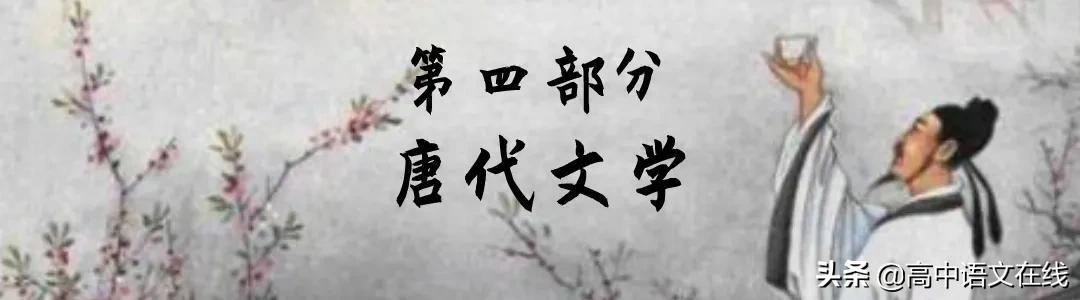 第四部分
唐代文学
头条 @高中语文在线